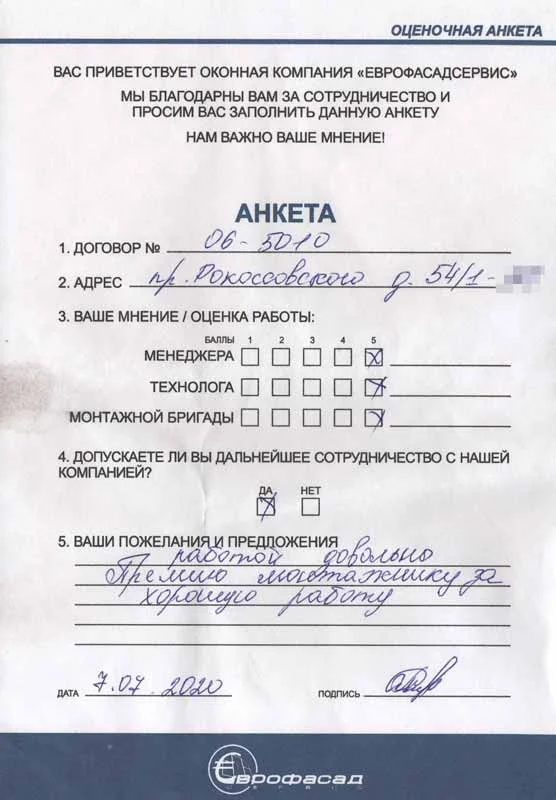 ОЦЕНОЧНАЯ АНКЕТА
ВАС ПРИВЕТСТВУЕТ ОКОННАЯ КОМПАНИЯ «ЕВРОФАСАДСЕРВИС»
МЫ БЛАГОДАРНЫ ВАМ ЗА СОТРУДНИЧЕСТВО И
ПРОСИМ ВАС ЗАПОЛНИТЬ ДАННУЮ АНКЕТУ
НАМ ВАЖНО ВАШЕ МНЕНИЕ!
АНКЕТА
1. ДОГОВОР № 06-5010
2. АДРЕС пр. Рокоссовского д. 54/1-
3. ВАШЕ МНЕНИЕ / ОЦЕНКА РАБОТЫ:
БАЛЛЫ 1 2 3 4 5
МЕНЕДЖЕРА
ТЕХНОЛОГА
МОНТАЖНОЙ БРИГАДЫ
4. ДОПУСКАЕТЕ ЛИ ВЫ ДАЛЬНЕЙШЕЕ СОТРУДНИЧЕСТВО С НАШЕЙ
КОМПАНИЕЙ?
ДА НЕТ
5. ВАШИ ПОЖЕЛАНИЯ И ПРЕДЛОЖЕНИЯ
работой довольно
Премию монтажнику за
хорошую работу
ДАТА 7.07.2020 ПОДПИСЬ
Еврофасад
СЕРВИС